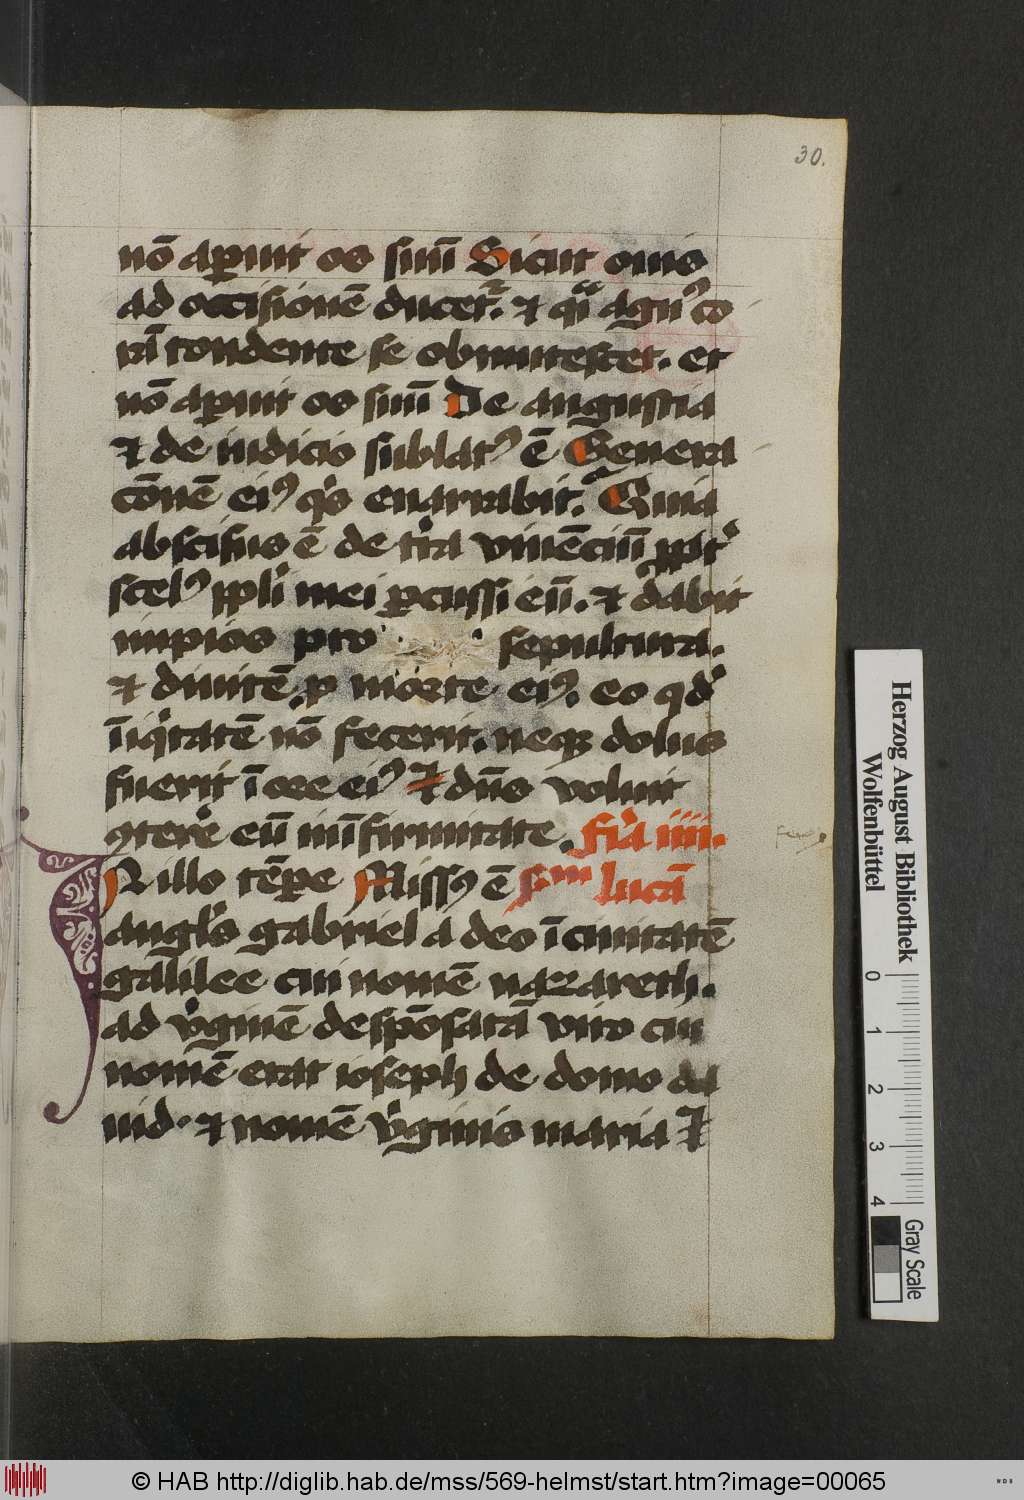 30.
nō aꝑuit os suū Sicut ouis
ad occisionē ducet᷑. ⁊ qͣi agnꝰ co
rā tondente se obmutescet. et
nō aꝑuit os suū De angustia
⁊ de iudicio sublatꝰ ē Genera
cōnē eiꝰ qͥs enarrabit. Quia
abscisus ē de tr̄a viuēciū ꝓpt͛
scelꝰ ppl̄i mei ꝑcussi eū. ⁊ dabit
impios pro sepultura.
⁊ diuitē ꝓ morte eiꝰ. eo qd̓
īiqͥtatē nō fecerit. neqꝫ dolus
fuerit ī ore eiꝰ Et dn̄s voluit
ꝯterēe eū in īfirmitate. Fr̄a iiii.
IN illo tēꝑe Missꝰ ē scdm lucā
angl̓s gabriel a deo ī ciuitatē
galilee cui nomē nazareth.
ad v͛ginē despōsatā viro cui
nomē erat ioseph de domo da
uid. ⁊ nomē v͛ginis maria Et
Herzog August Bibliothek
Wolfenbüttel
0 1 2 3 4
Gray Scale
© HAB http://diglib.hab.de/mss/569-helmst/start.htm?image=00065